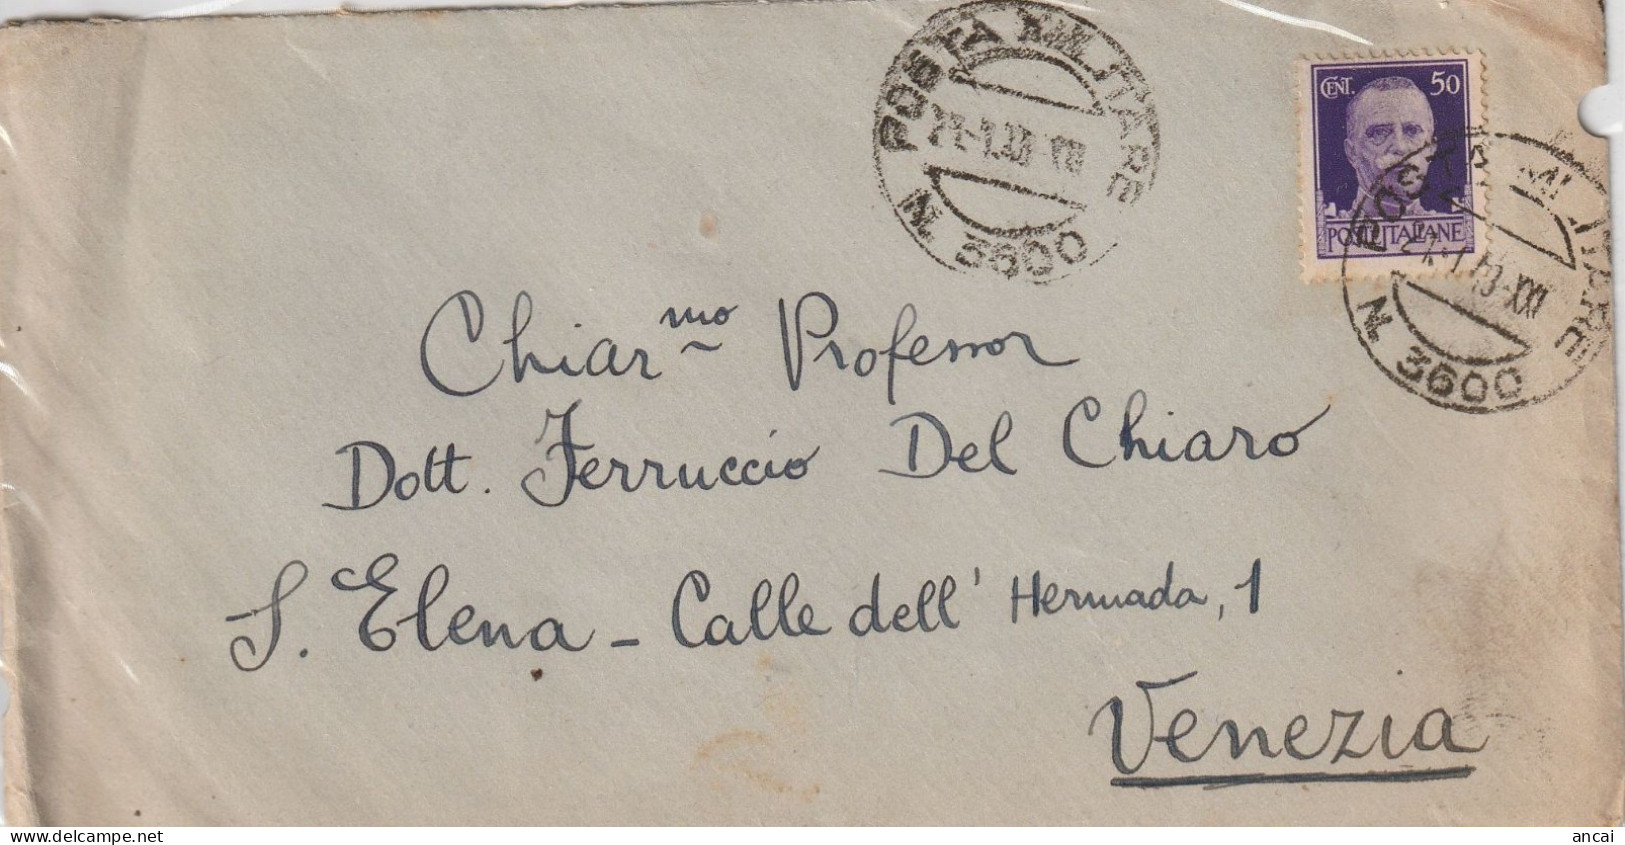 POSTA MILITARE
N. 3600
CENT. 50
POSTE ITALIANE
POSTA MILITARE
N. 3600
Chiar.mo Professor
Dott. Ferruccio Del Chiaro
S. Elena - Calle dell' Hermada, 1
Venezia
www.delcampe.net
ancai